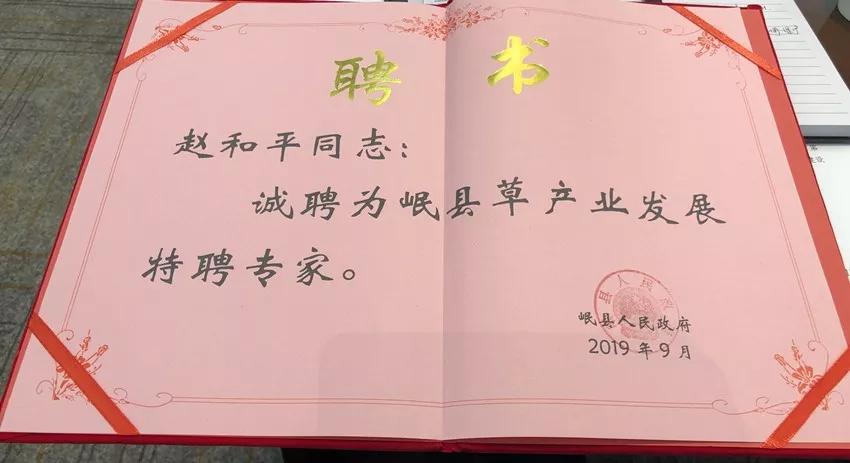 聘 书
赵和平同志：
诚聘为岷县草产业发展
特聘专家。
岷县人民政府
2019年9月